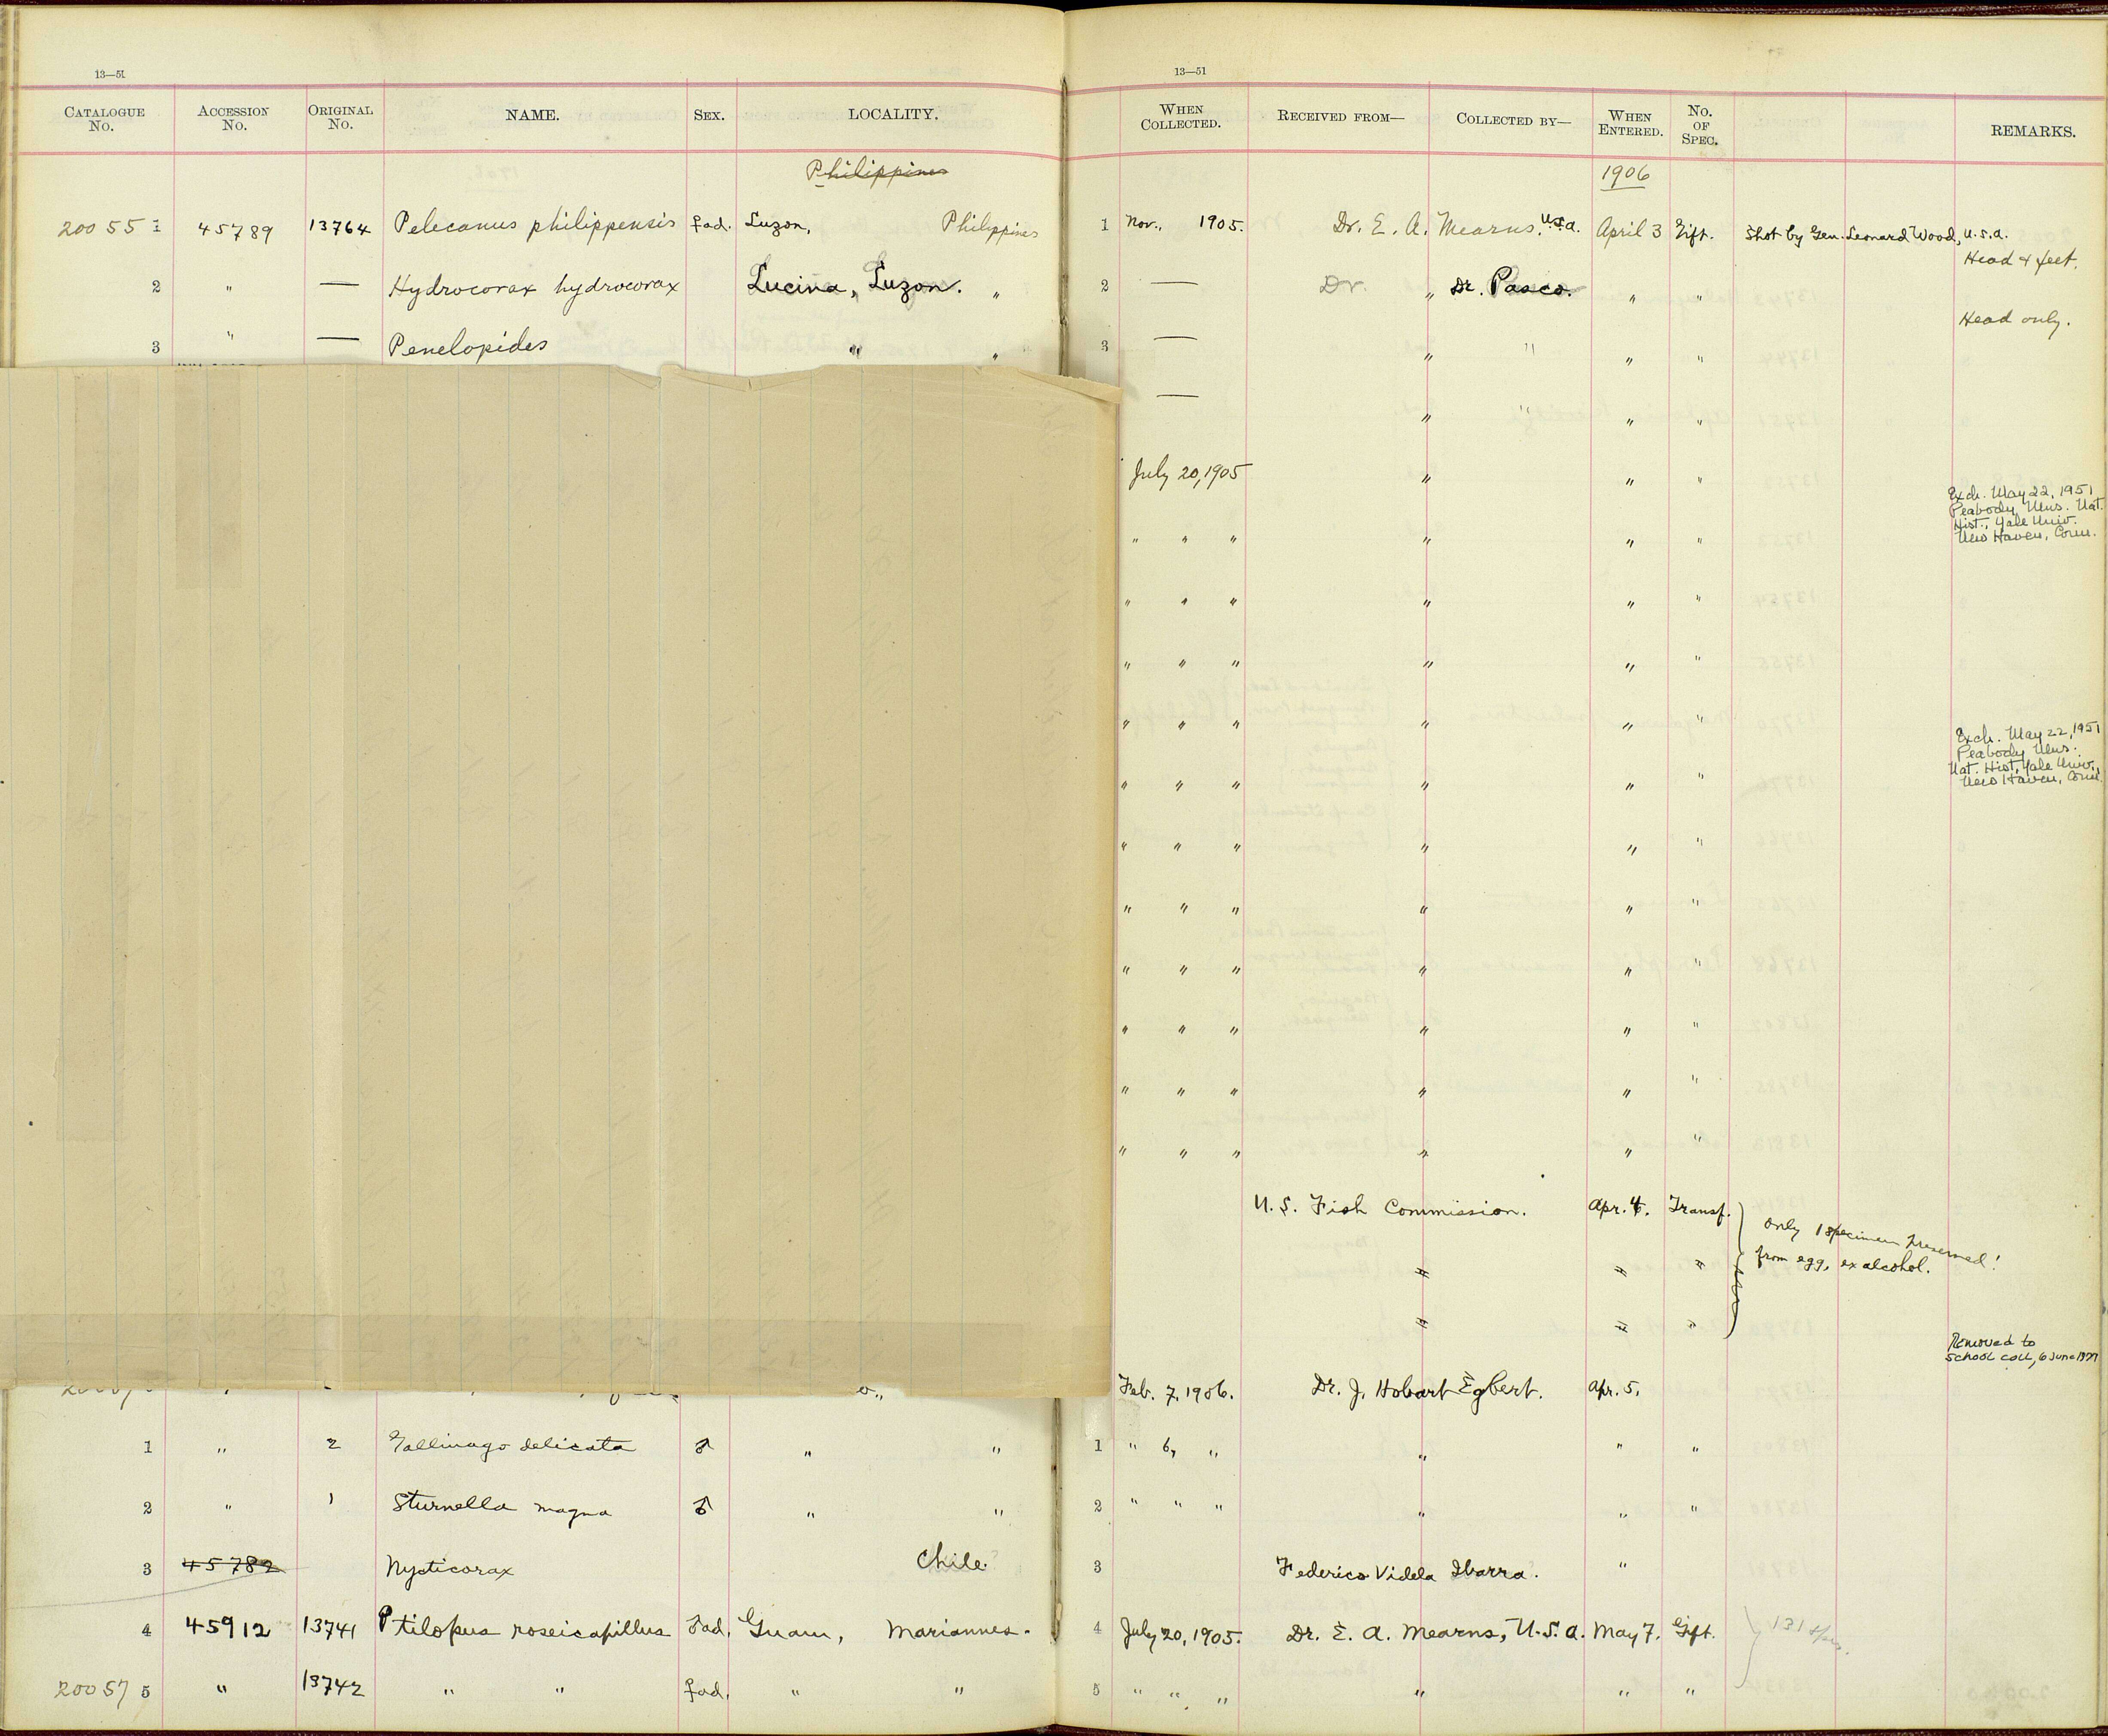 13—51
CATALOGUE No. ACCESSION No. ORIGINAL No. NAME. SEX. LOCALITY.
Philippines
20055 1 45789 13764 Pelecanus philippensis ♀ad. Luzon, Philippines
2 " — Hydrocorax hydrocorax Lucina, Luzon. "
3 " — Penelopides " "
1 " 2 Gallinago delicata ♂ " "
2 " 1 Sturnella magna ♂ " "
3 45782 Nycticorax Chile.
4 45912 13741 Ptilopus roseicapillus ♂ad. Guam, Mariannes.
20057 5 " 13742 " " ♀ad. " "
13—51
WHEN COLLECTED. RECEIVED FROM— COLLECTED BY— WHEN ENTERED. No. OF SPEC. REMARKS.
1906
1 Nov., 1905. Dr. E. A. Mearns, U.S.A. April 3 Gift. Shot by Gen. Leonard Wood, U.S.A.
Head & feet.
2 — Dr. " Dr. Pasco. " "
Head only.
3 — " " " "
— " " " "
July 20, 1905 " " "
Exch. May 22, 1951
Peabody Mus. Nat.
Hist., Yale Univ.
New Haven, Conn.
" " " " " "
" " " " " "
" " " " " "
" " " " " "
Exch. May 22, 1951
Peabody Mus.
Nat. Hist, Yale Univ.,
New Haven, Conn.
" " " " " "
" " " " " "
" " " " " "
" " " " " "
" " " " " "
" " " " " "
" " " " " "
U. S. Fish Commission. Apr. 4. Transf.
Only 1 specimen preserved!
from egg, ex alcohol.
" " "
" " "
Removed to
School coll, 6 June 1977
Feb. 7, 1906. Dr. J. Hobart Egbert. Apr. 5.
1 " 6, " " " "
2 " " " " " "
3 Federico Videla Ibarra. "
4 July 20, 1905. Dr. E. A. Mearns, U.S.A. May 7. Gift. 131
5 " " " " " "